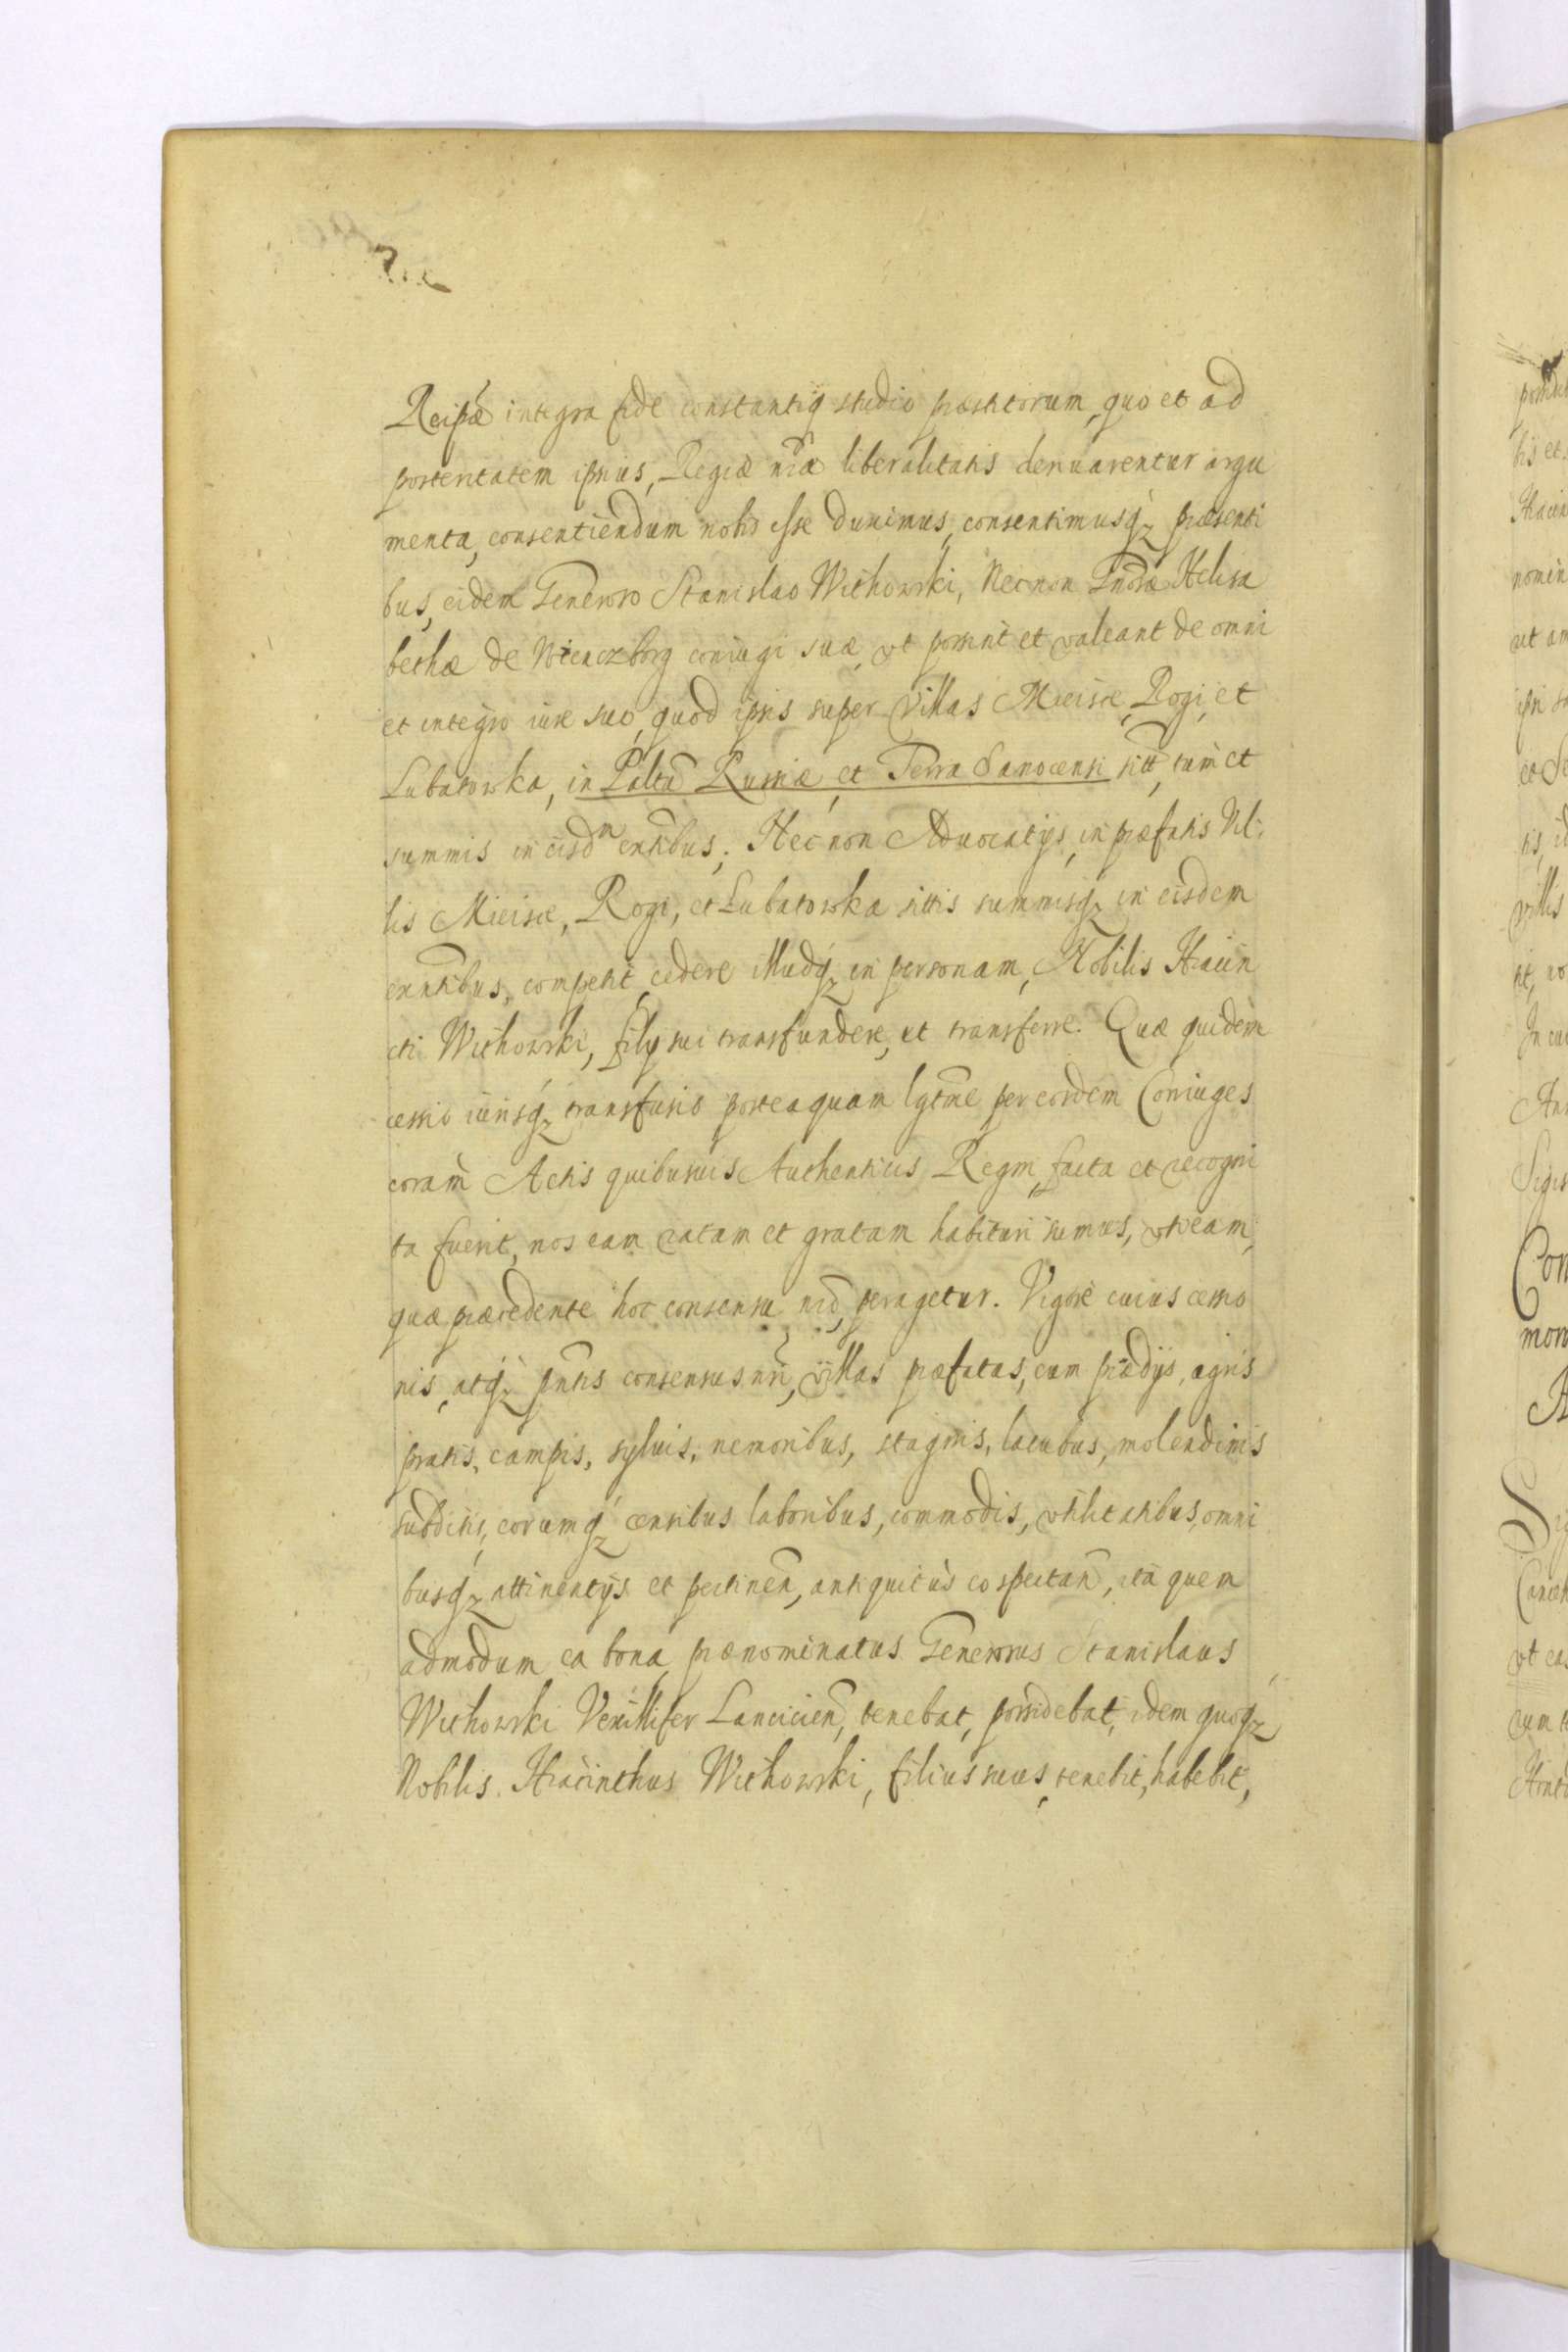 Reipcæ integra fide constantiq studio præstitorum, quo et ad
posteritatem ipsius, Regiæ nrãe liberalitatis deriuarentur argu
menta, consentiendum nobis esse duximus, consentimusq, præsenti
bus, eidem Generoso Stanislao Withowski, Necnon Gnosæ Helisa
bethæ de coniugi suæ, vt possint et valeant de omni
et integro iure suo, quod ipsis super Villas Mieisce, Rogi, et
Lubatowka, in Paltũ Russiæ, et Terra Sanocensi sitt, tum et
summis in eisdm eñtibus; Nec non Aduocatijs, in præfatis Vil:
lis Mieisce, Rogi, et Lubatowka sittis summisq, in eisdem
exñtibus, competit, cedere illudq, in personam, Nobilis Hiacin
cti Withowski, filij sui transfundere, et transferre. Quæ quidem
cessio iurisq, transfusio posteaquam lgtme per eosdem Coniuges
coram Actis quibusuis Authenticis Regni facta et recogni
ta fuerit, nos eam ratam et gratam habituri sumus, vti eam,
quæ præcedente hoc consensu nrõ, peragetur. Vigore cuius cessio
nis, atq, pñtis consensus nrĩ, villas præfatas, cum prædijs, agris
pratis, campis, syluis, nemoribus, stagnis, lacubus, molendinis
subditis, eorumq, censibus laboribus, commodis, vtilitatibus, omni
busq, attinentijs et pertineñ, antiquitùs eo spectañ, ita quem
admodum ea bona prænominatus Generosus Stanislaus
Withowski Vexillifer Lancicieñ, tenebat, possidebat, idem quoq,
Nobilis Hiacinthus Withowski, filius suus, tenebit, habebit,